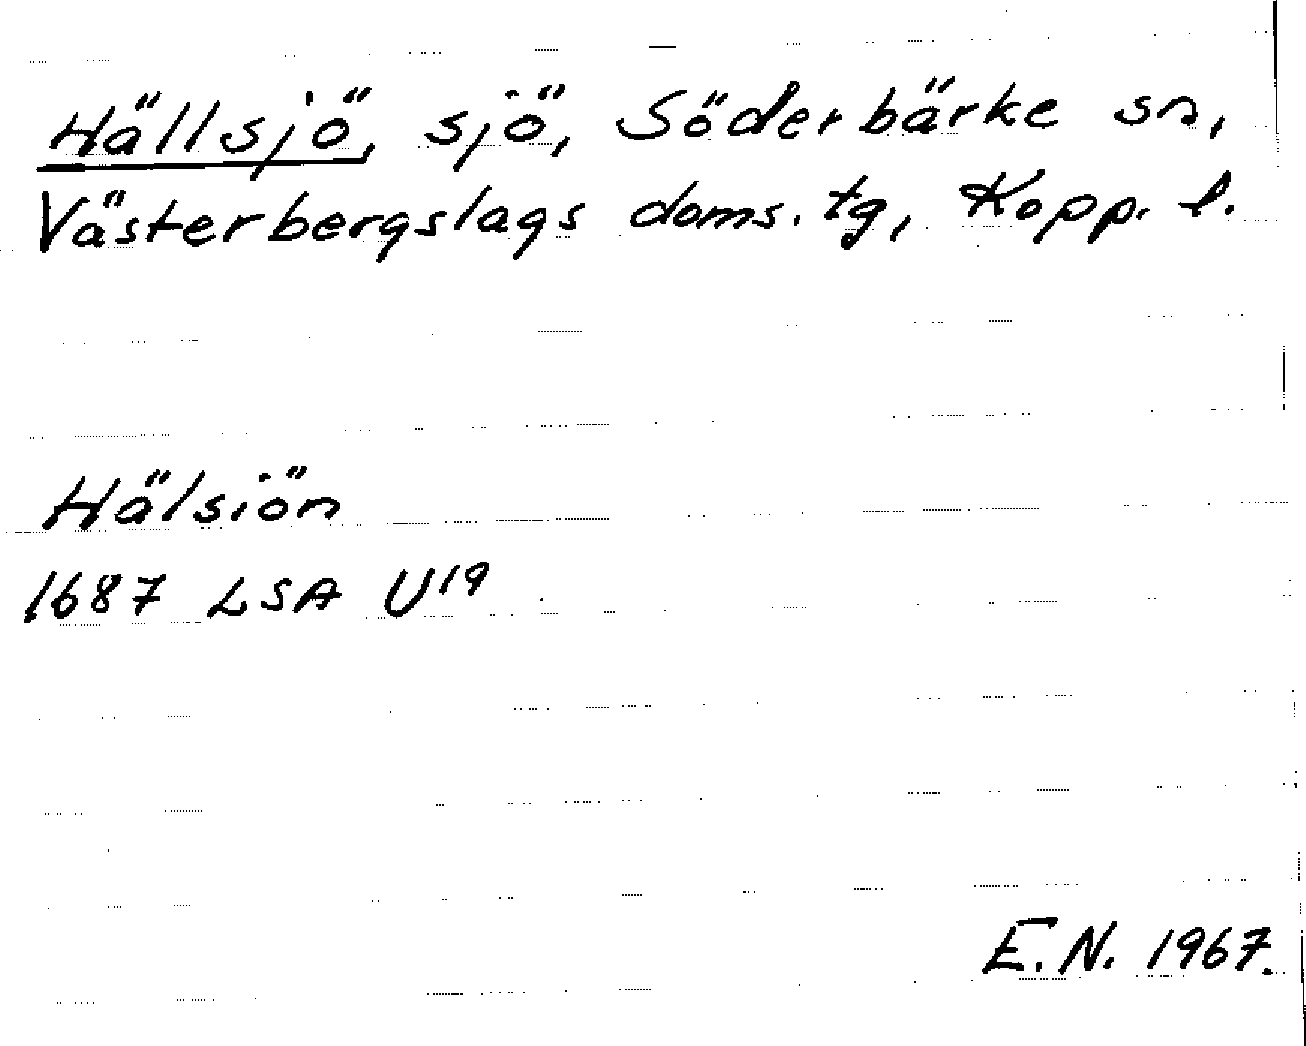 Hällsjö, sjö, Söderbärke sn,
Västerbergslags doms. tg, Kopp. l.
Hälsiön
1687 LSA U19
E.N. 1967.